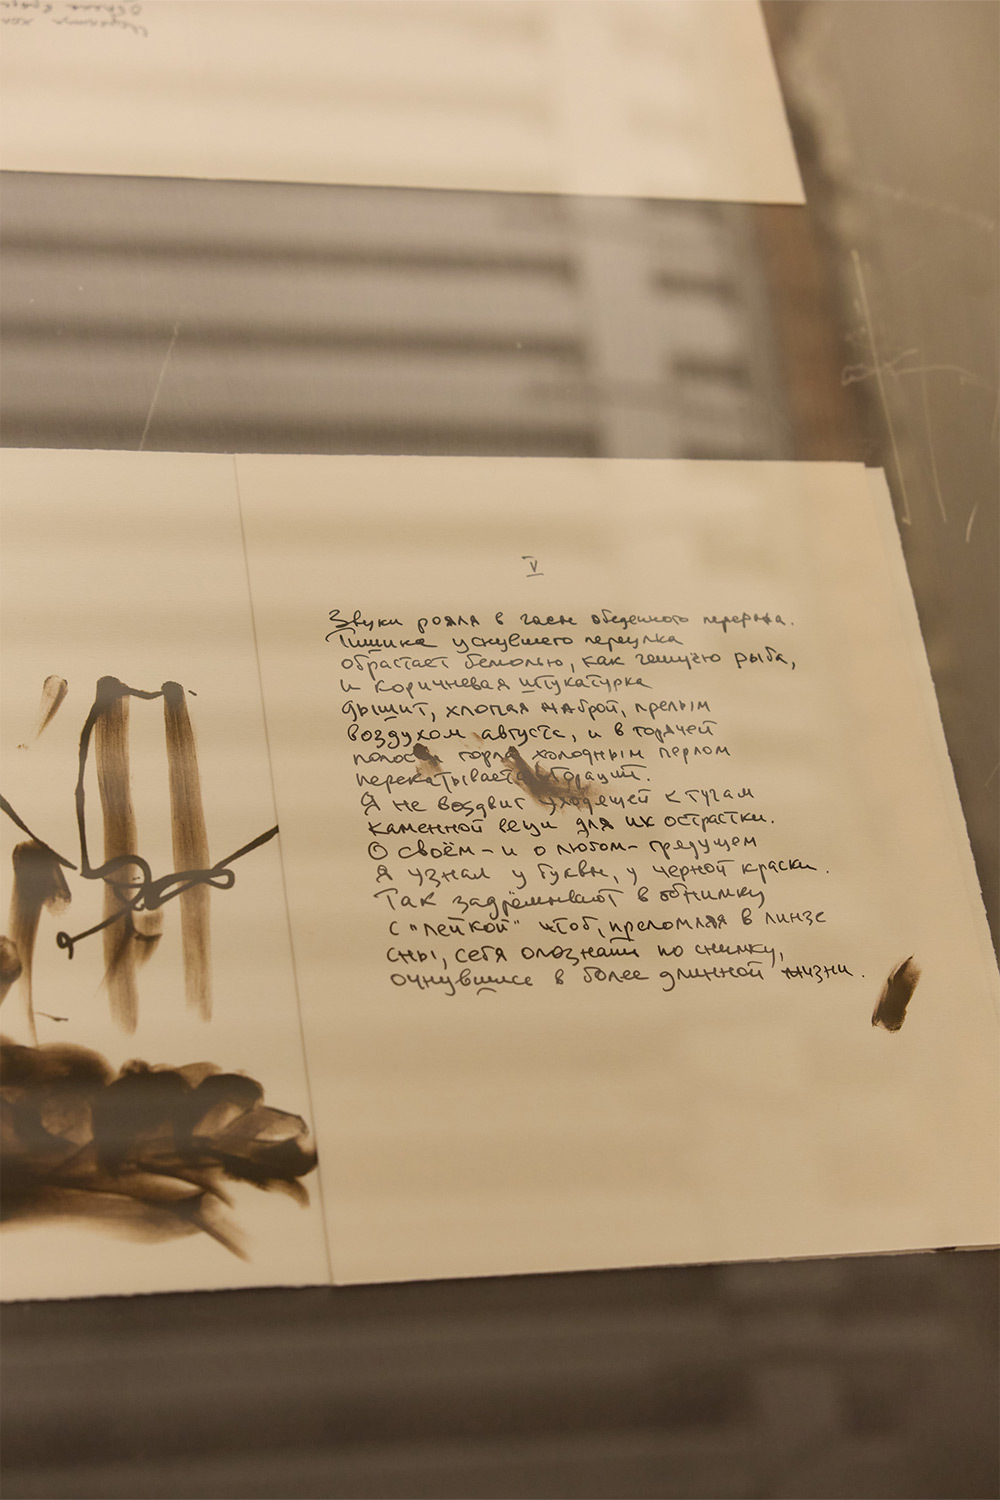 V
Звуки рояля в часы обеденного перерыва.
Тишина уснувшего переулка
обрастает бемолью, как чешуёю рыба,
и коричневая штукатурка
дышит, хлопая жаброй, прелым
воздухом августа, и в горячей
полости горла холодным перлом
перекатывается Гораций.
Я не воздвиг уходящей к тучам
каменной вещи для их острастки.
О своём – и о любом – грядущем
я узнал у буквы, у черной краски.
Так задрёмывают в обнимку
с "лейкой" чтоб, преломляя в линзе
сны, себя опознать по снимку,
очнувшись в более длинной жизни.